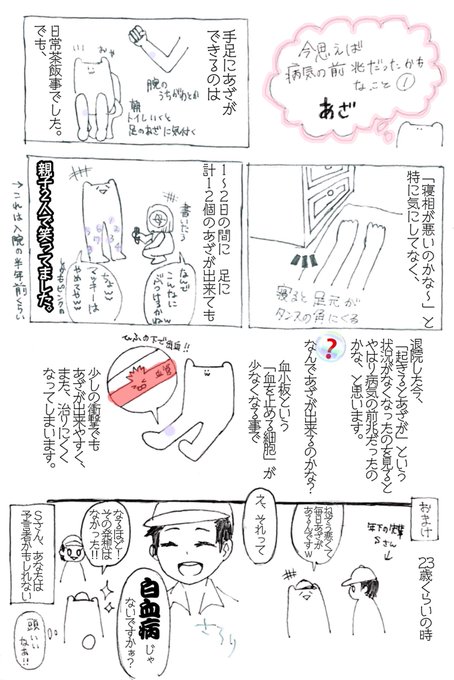 今思えば
病気の前兆だったかも
なこと①
あざ
手足にあざが
できるのは
日常茶飯事でした。
でも、
腕の
うちがわとか
朝
トイレいくと
足のあざに気付く
「寝相が悪いのかな〜」と
特に気にしてなく、
寝ると足元が
タンスの角にくる
1〜2日の間に 足に
計12個のあざが出来ても
親子2人で笑ってました。
→これは入院の半年前くらい
書いたろ
なんで
こんなに
マッキーは
やめてw
しかもピンクの
退院した今、
「起きるとあざが」という
状況がなくなったのを見ると
やはり病気の前兆だったの
かな、と思います。
?
なんであざが出来るのかな?
血小板という
「血を止める細胞」が
少なくなる事で
ひふの下で出血!!
血管
少しの衝撃でも
あざが出来やすく、
また、治りにくく
なってしまいます。
おまけ
23歳くらいの時
年下の先輩
Sさん
ねぞう悪くて
毎日あざが
あるんですw
え、それって
白血病じゃ
ないですかぁ?
さらり
なるほど!
その発想は
なかった!!
Sさん、あなたは
予言者かもしれない
頭いい
なぁ!!